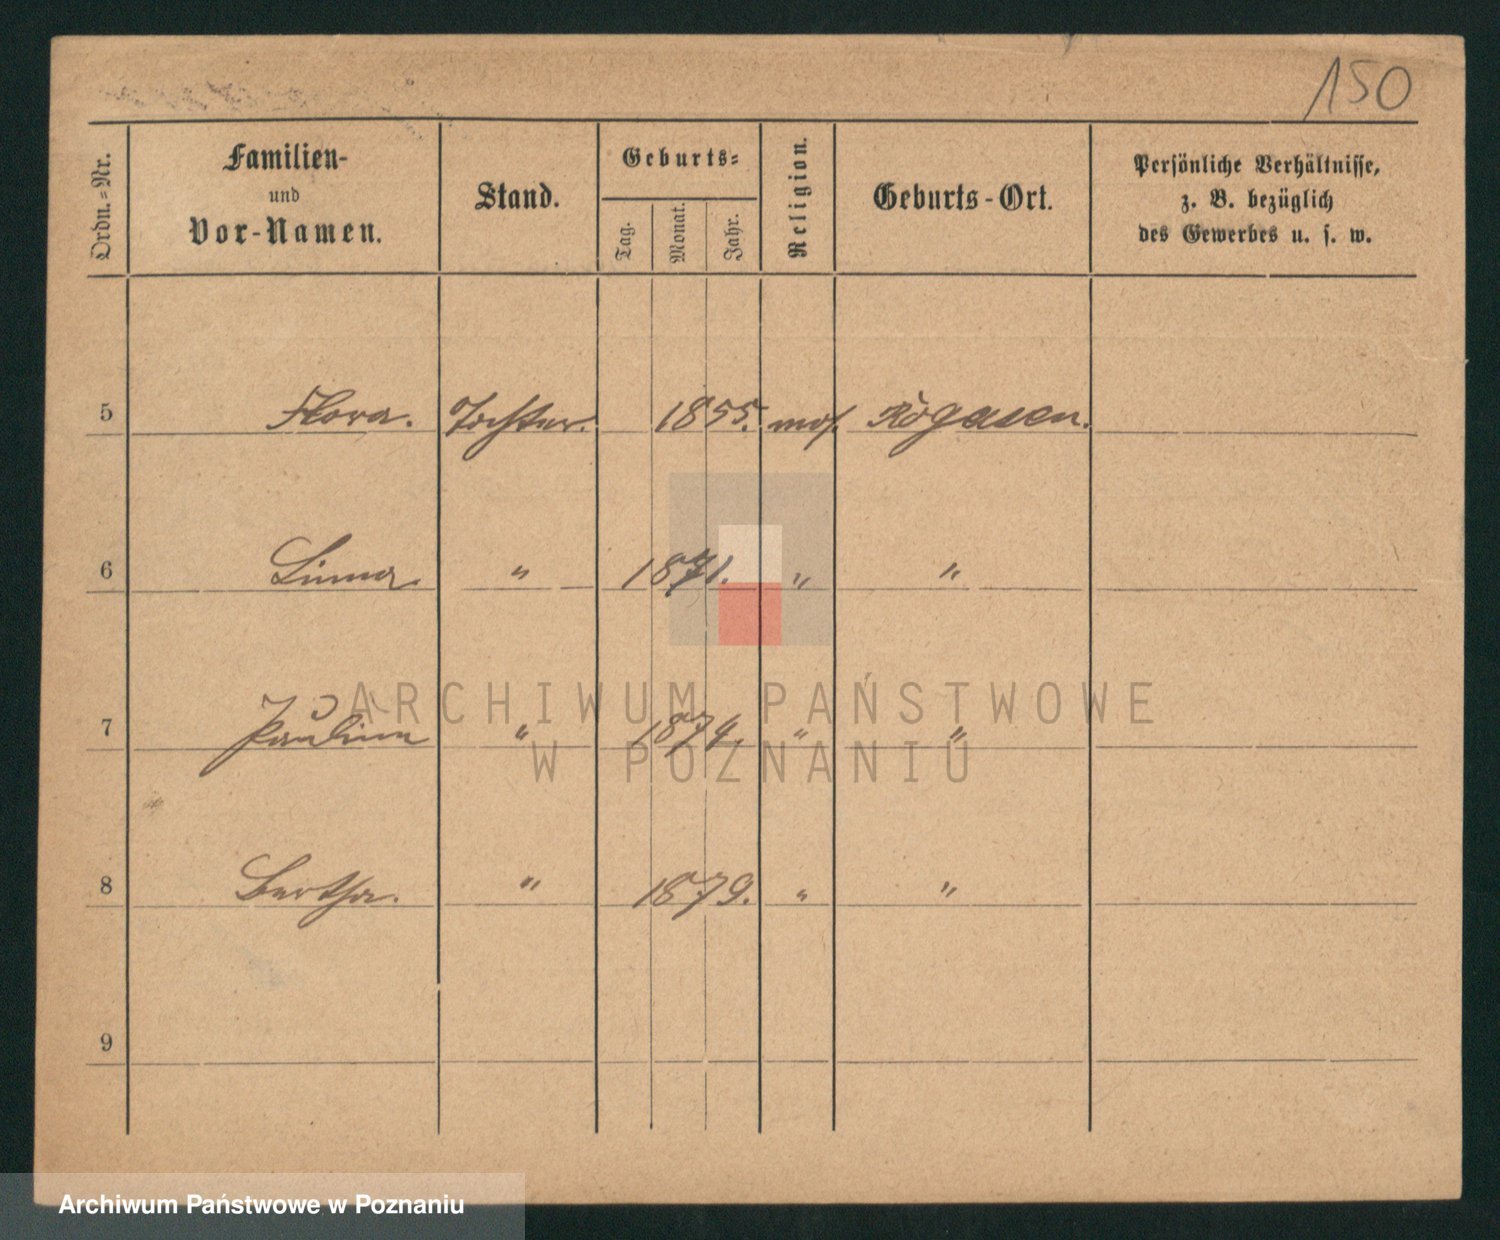 150
Ordn.-Nr.
Familien-
und
Vor-Namen.
Stand.
Geburts-
Tag.
Monat.
Jahr.
Religion.
Geburts-Ort.
Persönliche Verhältnisse,
z. B. bezüglich
des Gewerbes u. s. w.
5 Flora. Tochter. 1855. mos. Rogasen.
6 " 1871. " "
7 Pauline " 1874. " "
8 Bertha. " 1879. " "
9
ARCHIWUM PAŃSTWOWE
W POZNANIU
Archiwum Państwowe w Poznaniu